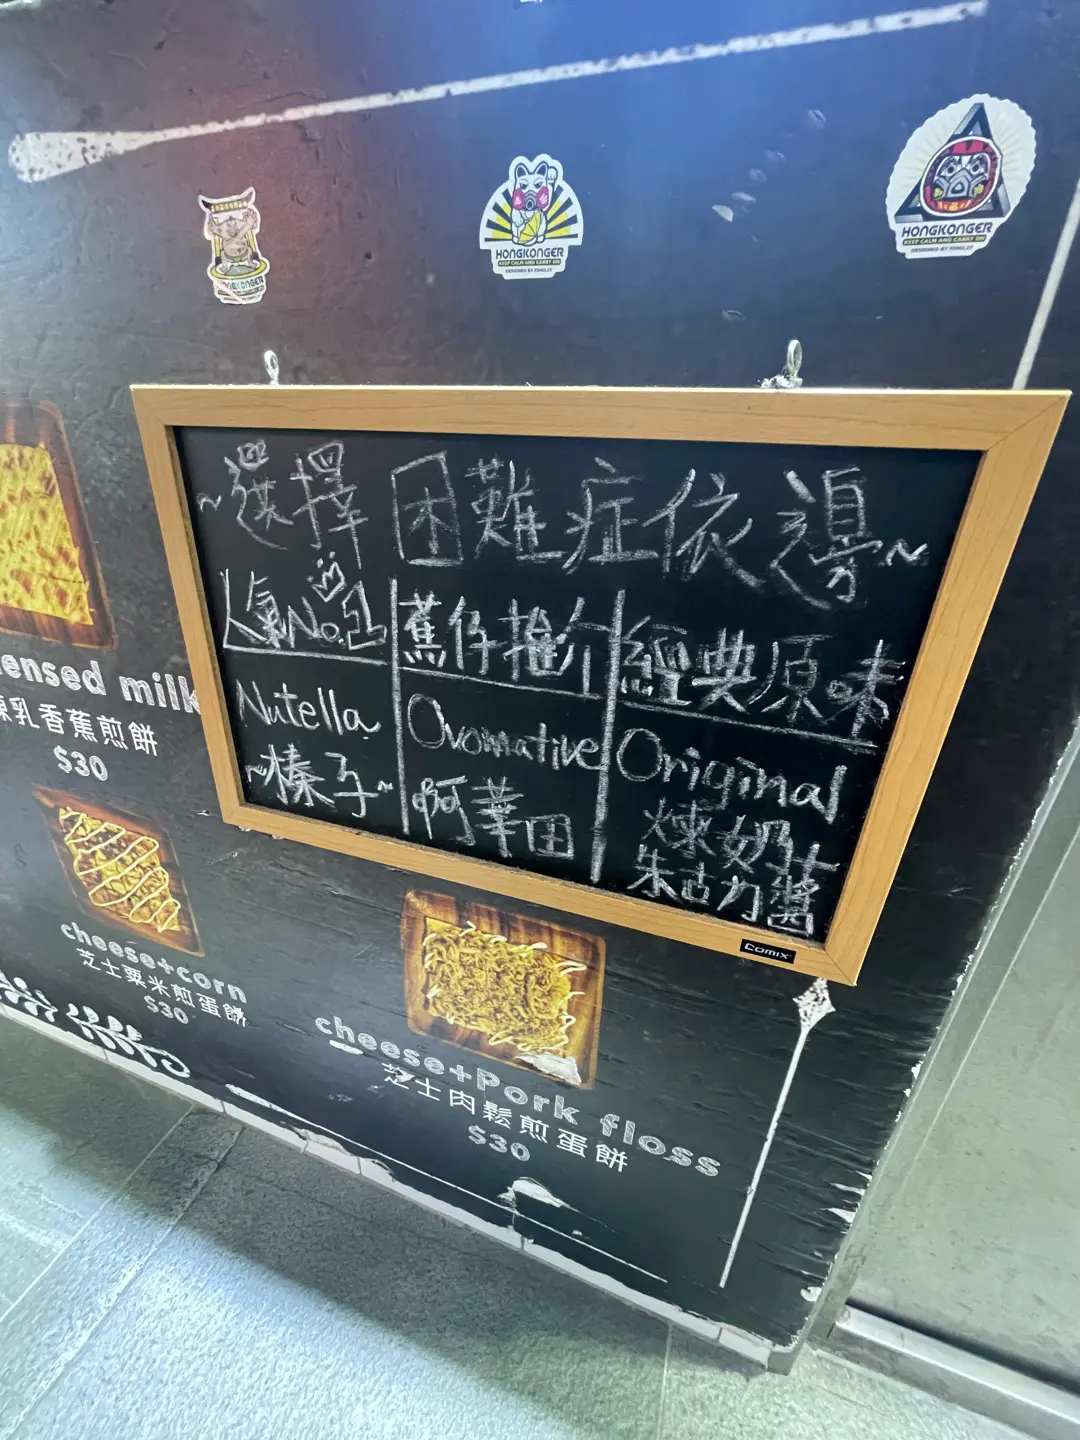 HONGKONGER
KEEP CALM AND CARRY ON
HONGKONGER
KEEP CALM AND CARRY ON
DESIGNED BY
HONGKONGER
KEEP CALM AND CARRY ON
DESIGNED BY
~選擇困難症依邊~
人氣No.1
Nutella
~榛子~
蕉仔推介
Ovomative
啊華田
經典原味
Original
煉奶
朱古力醬
comix
ensed milk
煉乳香蕉煎餅
$30
cheese+corn
芝士粟米煎蛋餅
$30
cheese+Pork floss
芝士肉鬆煎蛋餅
$30